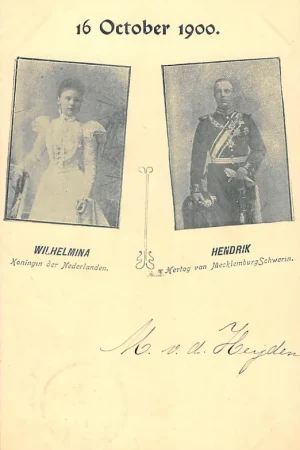 16 October 1900.
WILHELMINA
Koningin der Nederlanden.
HENDRIK
Hertog van Mecklemburg Schwerin.
M. v. d. Heyden